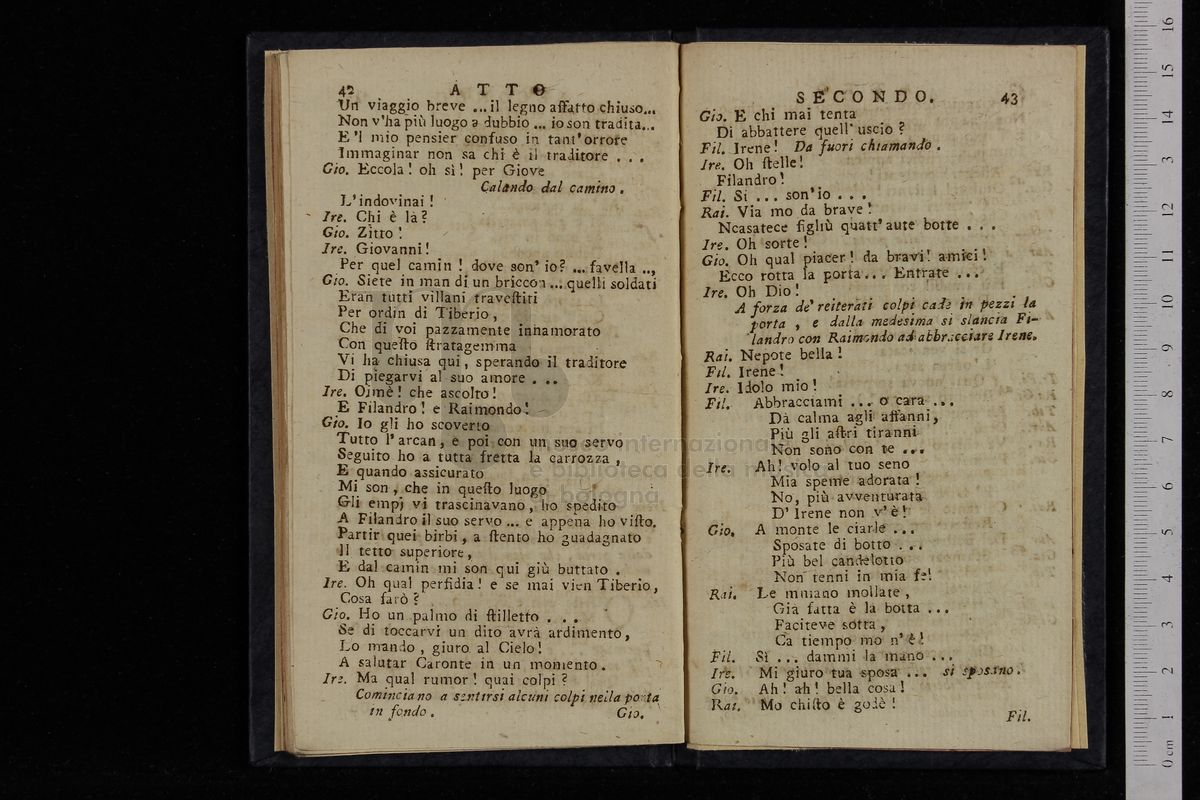 42 ATTO
Un viaggio breve ... il legno affatto chiuso...
Non v'ha più luogo a dubbio ... io son tradita...
E 'l mio pensier confuso in tant' orrore
Immaginar non sa chi è il traditore . . .
Gio. Eccola! oh sì! per Giove
Calando dal camino.
L'indovinai!
Ire. Chi è là?
Gio. Zitto!
Ire. Giovanni!
Per quel camin! dove son' io? ... favella ..,
Gio. Siete in man di un briccon ... quelli soldati
Eran tutti villani travestiti
Per ordin di Tiberio,
Che di voi pazzamente innamorato
Con questo stratagemma
Vi ha chiusa qui, sperando il traditore
Di piegarvi al suo amore . ..
Ire. Oimè! che ascolto!
E Filandro! e Raimondo!
Gio. Io gli ho scoverto
Tutto l'arcan, e poi con un suo servo
Seguito ho a tutta fretta la carrozza,
E quando assicurato
Mi son, che in questo luogo
Gli empj vi trascinavano, ho spedito
A Filandro il suo servo ... e appena ho visto.
Partir quei birbi, a stento ho guadagnato
Il tetto superiore,
E dal camin mi son qui giù buttato.
Ire. Oh qual perfidia! e se mai vien Tiberio,
Cosa farò?
Gio. Ho un palmo di stilletto . . .
Se di toccarvi un dito avrà ardimento,
Lo mando, giuro al Cielo!
A salutar Caronte in un momento.
Ire. Ma qual rumor! quai colpi?
Cominciano a sentirsi alcuni colpi nella porta
in fondo. Gio.
SECONDO. 43
Gio. E chi mai tenta
Di abbattere quell' uscio?
Fil. Irene! Da fuori chiamando.
Ire. Oh stelle!
Filandro!
Fil. Si ... son' io . . .
Rai. Via mo da brave!
Ncasatece figliù quatt' aute botte . . .
Ire. Oh sorte!
Gio. Oh qual piacer! da bravi! amici!
Ecco rotta la porta... Entrate ...
Ire. Oh Dio!
A forza de' reiterati colpi cade in pezzi la
porta, e dalla medesima si slancia Fi-
landro con Raimondo ad abbracciare Irene.
Rai. Nepote bella!
Fil. Irene!
Ire. Idolo mio!
Fil. Abbracciami ... o cara ...
Dà calma agli affanni,
Più gli astri tiranni
Non sono con te ...
Ire. Ah! volo al tuo seno
Mia speme adorata!
No, più avventurata
D' Irene non v'è!
Gio. A monte le ciarle ...
Sposate di botto ...
Più bel candelotto
Non tenni in mia fe!
Rai. Le mmano mollate,
Già fatta è la botta ...
Faciteve sotta,
Ca tiempo mo n'è!
Fil. Sì ... dammi la mano ...
Ire. Mi giuro tua sposa ... si sposano.
Gio. Ah! ah! bella cosa!
Rai. Mo chisto è godè!
Fil.
internazionale
e biblioteca della musica
di bologna
0 cm 1 2 3 4 5 6 7 8 9 10 11 12 13 14 15 16